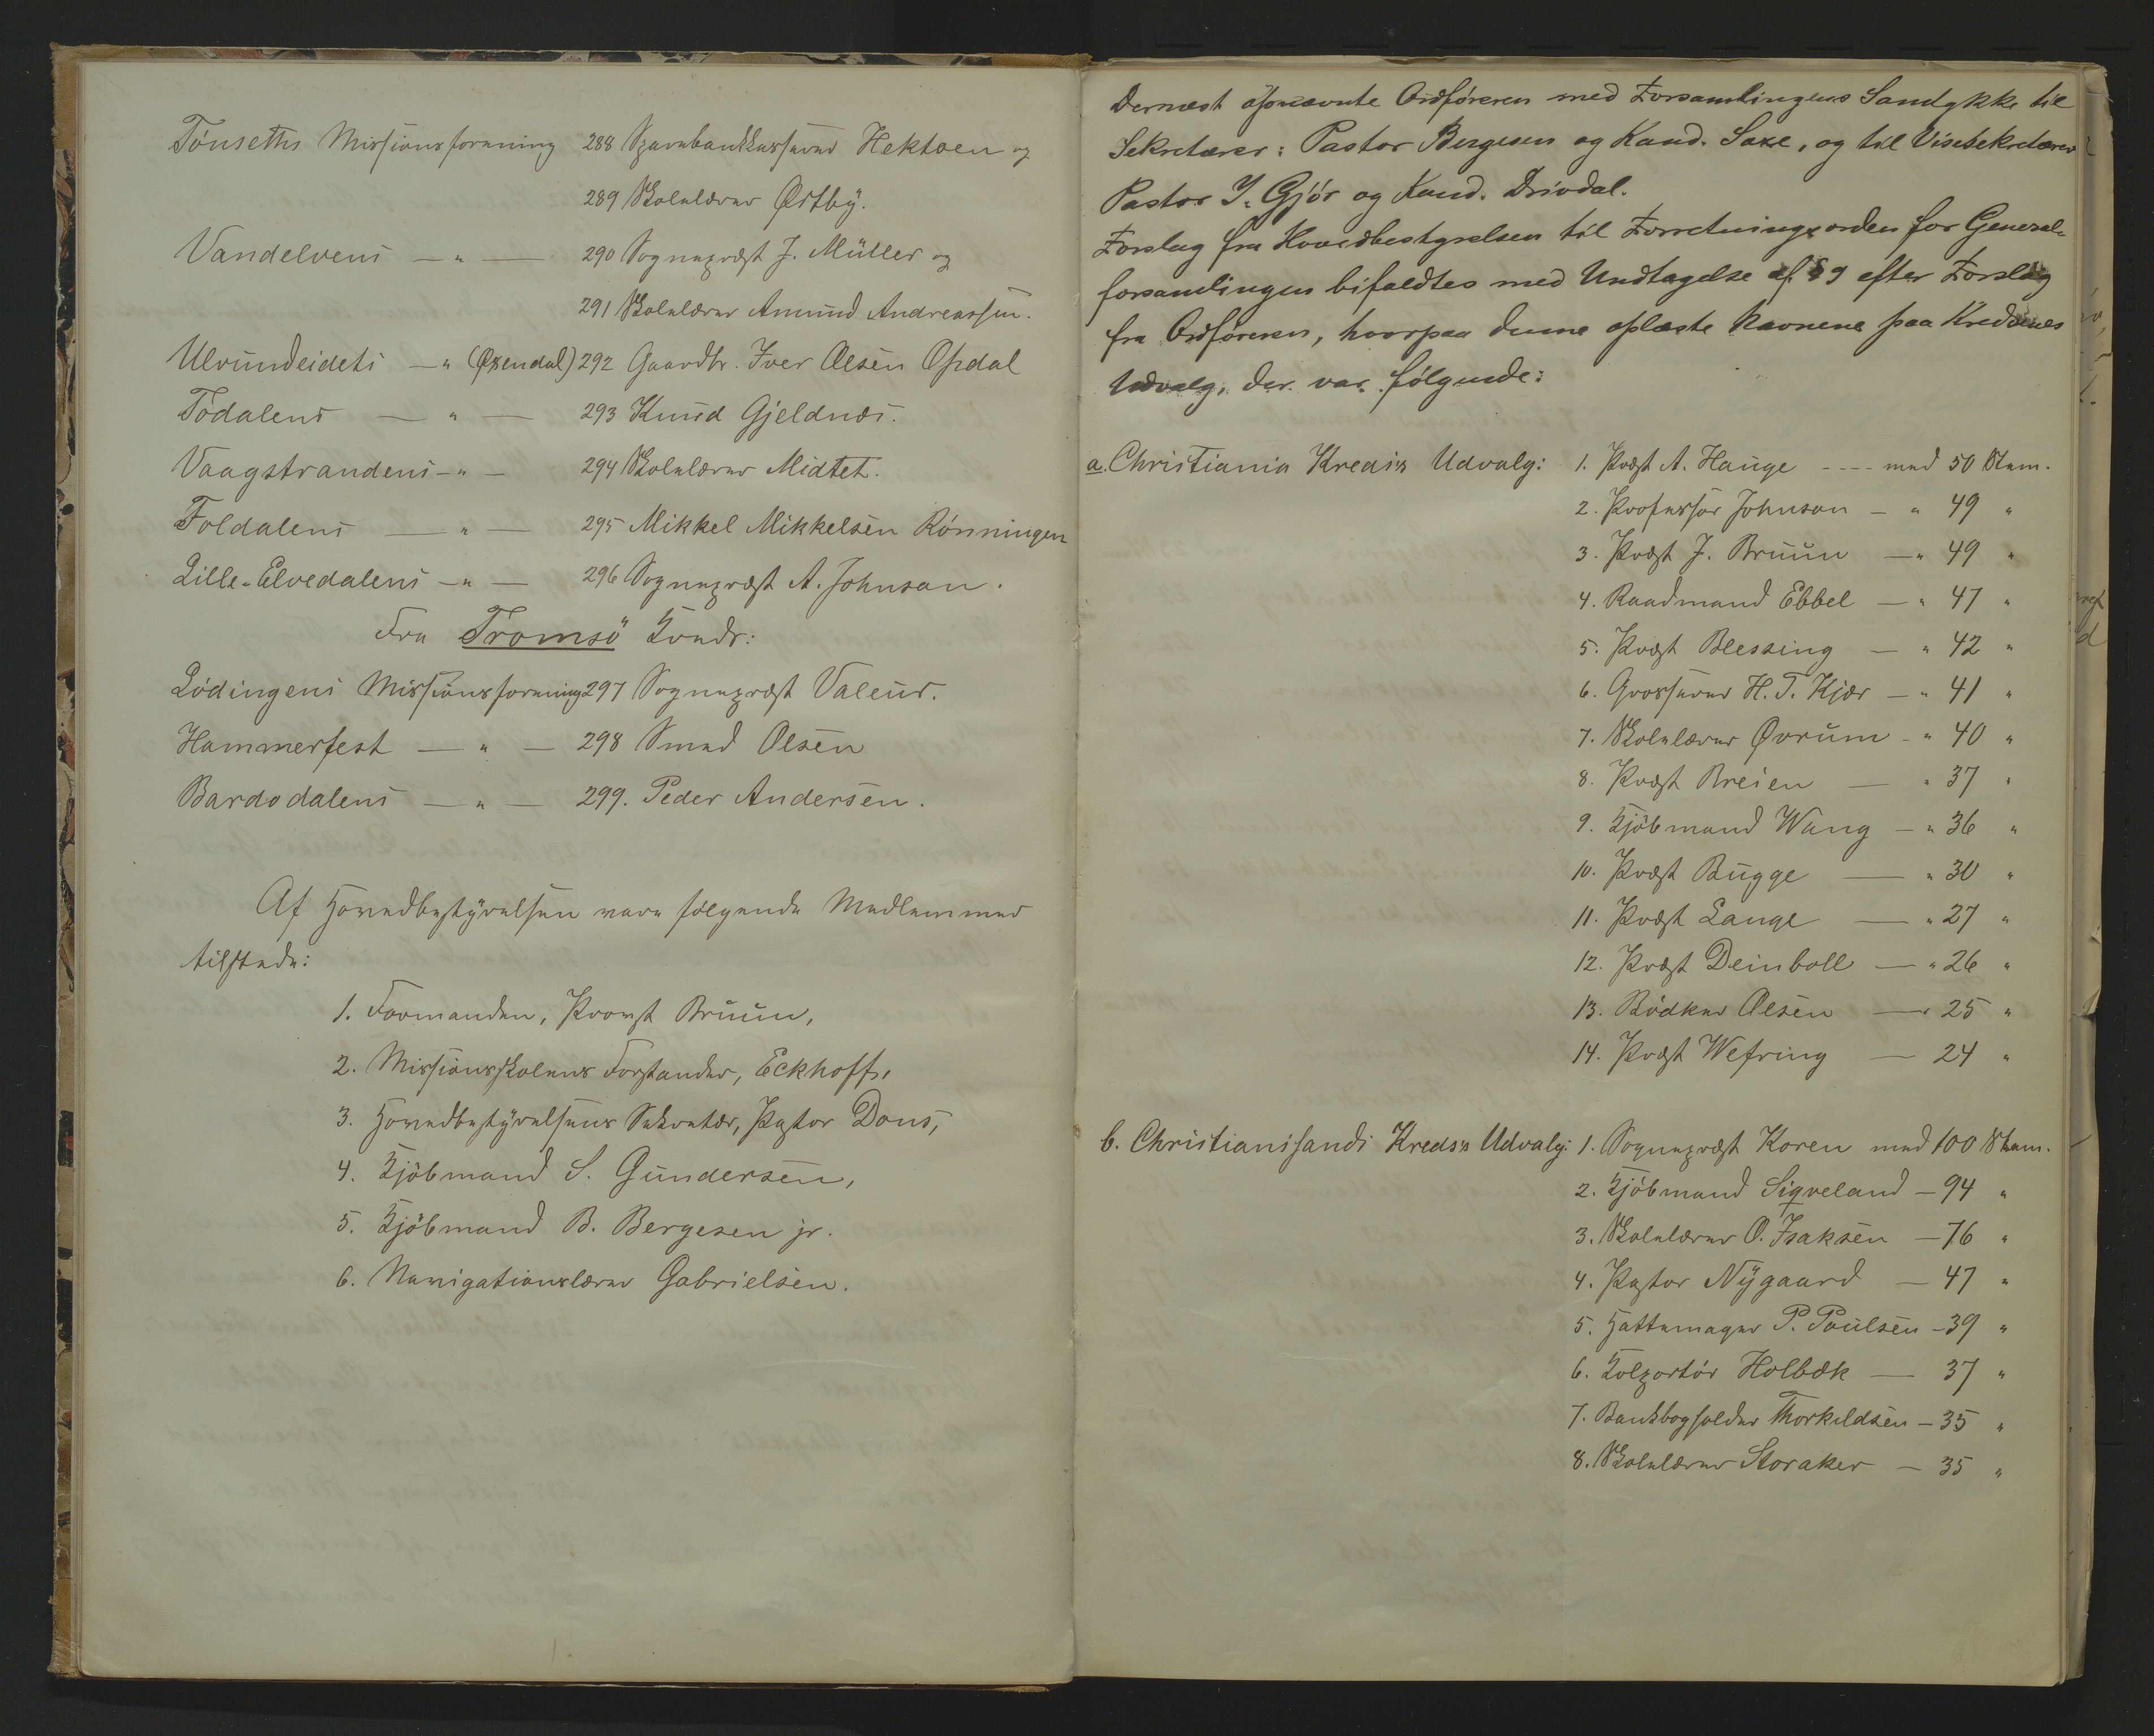 Tönseths Missionsforening 288 Sparebankkasserer Hektoen og
289 Skolelærer Østby.
Vandelvens — " — 290 Sognepræst J. Müller og
291 Skolelærer Amund Andreassen.
Ulvundeidets — " (Øxendal) 292 Gaardbr. Iver Olsen Opdal
Todalens — " — 293 Knud Gjeldnæs.
Vaagstrandens — " — 294 Skolelærer Midtet.
Foldalens — " — 295 Mikkel Mikkelsen Rönningen
Lille-Elvedalens — " — 296 Sognepræst A. Johnson.
Fra Tromsö Kreds:
Lödingens Missionsforening 297 Sognepræst Valeur.
Hammerfest — " — 298 Smed Olsen
Bardodalens — " — 299. Peder Andersen.
Af Hovedbestyrelsen vare følgende Medlemmer
tilstede:
1. Formanden, Provst Bruun,
2. Missionsskolens Forstander, Eckhoff,
3. Hovedbestyrelsens Sekretær, Pastor Dons,
4. Kjöbmand S. Gundersen,
5. Kjöbmand B. Bergesen jr.
6. Navigationslærer Gabrielsen.
Dernæst opnævnte Ordföreren med Forsamlingens Samtykke til
Sekretærer: Pastor Bergesen og Kand. Saxe, og til Visesekretærer
Pastor J. Gjör og Kand. Drivdal.
Forslag fra Hovedbestyrelsen til Forretningsorden for General-
forsamlingen bifaldtes med Undtagelse af § 9 efter Forslag
fra Ordföreren, hvorpaa denne oplæste Navnene paa Kredsenes
Udvalg, der var følgende:
a. Christiania Kreds's Udvalg: 1. Præst A. Hauge - - - - med 50 Stem.
2. Professor Johnson — " 49 "
3. Præst J. Bruun — " 49 "
4. Raadmand Ebbel — " 47 "
5. Præst Blessing — " 42 "
6. Grosserer H. T. Kjær — " 41 "
7. Skolelærer Øvrum - " 40 "
8. Præst Breien — " 37 "
9. Kjöbmand Wang — " 36 "
10. Præst Bugge — " 30 "
11. Præst Lange — " 27 "
12. Præst Deinboll — " 26 "
13. Bödker Olsen — " 25 "
14. Præst Wefring — 24 "
b. Christianssands Kreds's Udvalg: 1. Sognepræst Koren med 100 Stem.
2. Kjöbmand Siqveland — 94 "
3. Skolelærer O. Isaksen — 76 "
4. Pastor Nygaard — 47 "
5. Hattemager P. Poulsen — 39 "
6. Kolportör Holbæk — 37 "
7. Bankbogholder Thorkildsen — 35 "
8. Skolelærer Storaker — 35 "